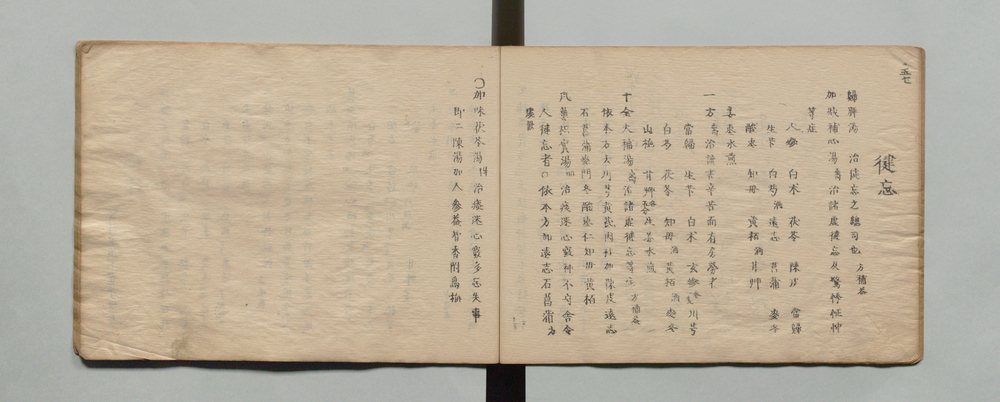 五七
健忘
歸脾湯 治健忘之總司也 方補益
加減補心湯 治諸虛健忘及驚悸怔忡
等症
人參 白朮 茯苓 陳皮 當歸
生芐 白芍 酒 遠志 菖蒲 麥冬
酸棗 知母 黃栢 酒 甘艸
姜棗水煎
一方 治讀書辛苦而有房勞者
當歸 生芐 白朮 玄參 川芎
白芍 茯苓 知母 酒 黃栢 酒 麥冬
山梔 甘艸 姜水煎
十全大補湯 治諸虛健忘等症 方補益
依本方去川芎黃芪肉桂加陳皮遠志
石菖蒲麥門冬酸棗仁知母黃栢
湯 治痰迷心竅神不守舍令
人健忘者 依本方加遠志石菖蒲方
痰飲
加味茯苓湯 治痰迷心竅多忘失事
即二陳湯加人參益智香附烏梅